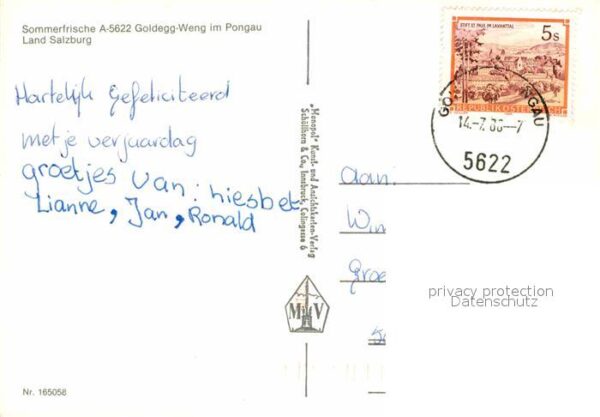 Sommerfrische A-5622 Goldegg-Weng im Pongau
Land Salzburg
Hartelijk gefeliciteerd
met je verjaardag
groetjes van: Liesbet
Lianne, Jan, Ronald
Nr. 165058
„Monopol" Kunst- und Ansichtskarten-Verlag
Schöllhorn & Co., Innsbruck, Colingasse 6
M V
STIFT ST. PAUL IM LAVANTTAL
5s
REPUBLIK ÖSTERREICH
5622
Aan:
privacy protection
Datenschutz